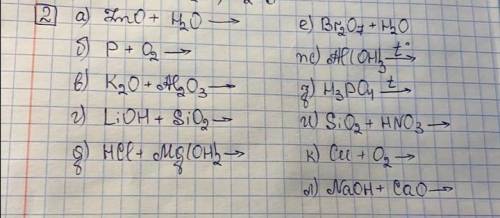 2 а) ZnO + H₂O →
б) P + O₂ →
в) K₂O + Al₂O₃ →
г) LiOH + SiO₂ →
д) HCl + Mg(OH)₂ →
е) Br₂O₇ + H₂O
ж) Al(OH)₃ t°→
з) H₃PO₄ t→
и) SiO₂ + HNO₃ →
к) Cu + O₂ →
л) NaOH + CaO →